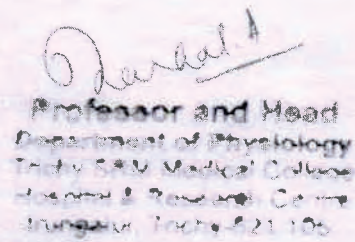 Professor and Head
Department of Physiology
Trichy SRM Medical College
Hospital & Research Centre
Irungalur, Trichy-621 105